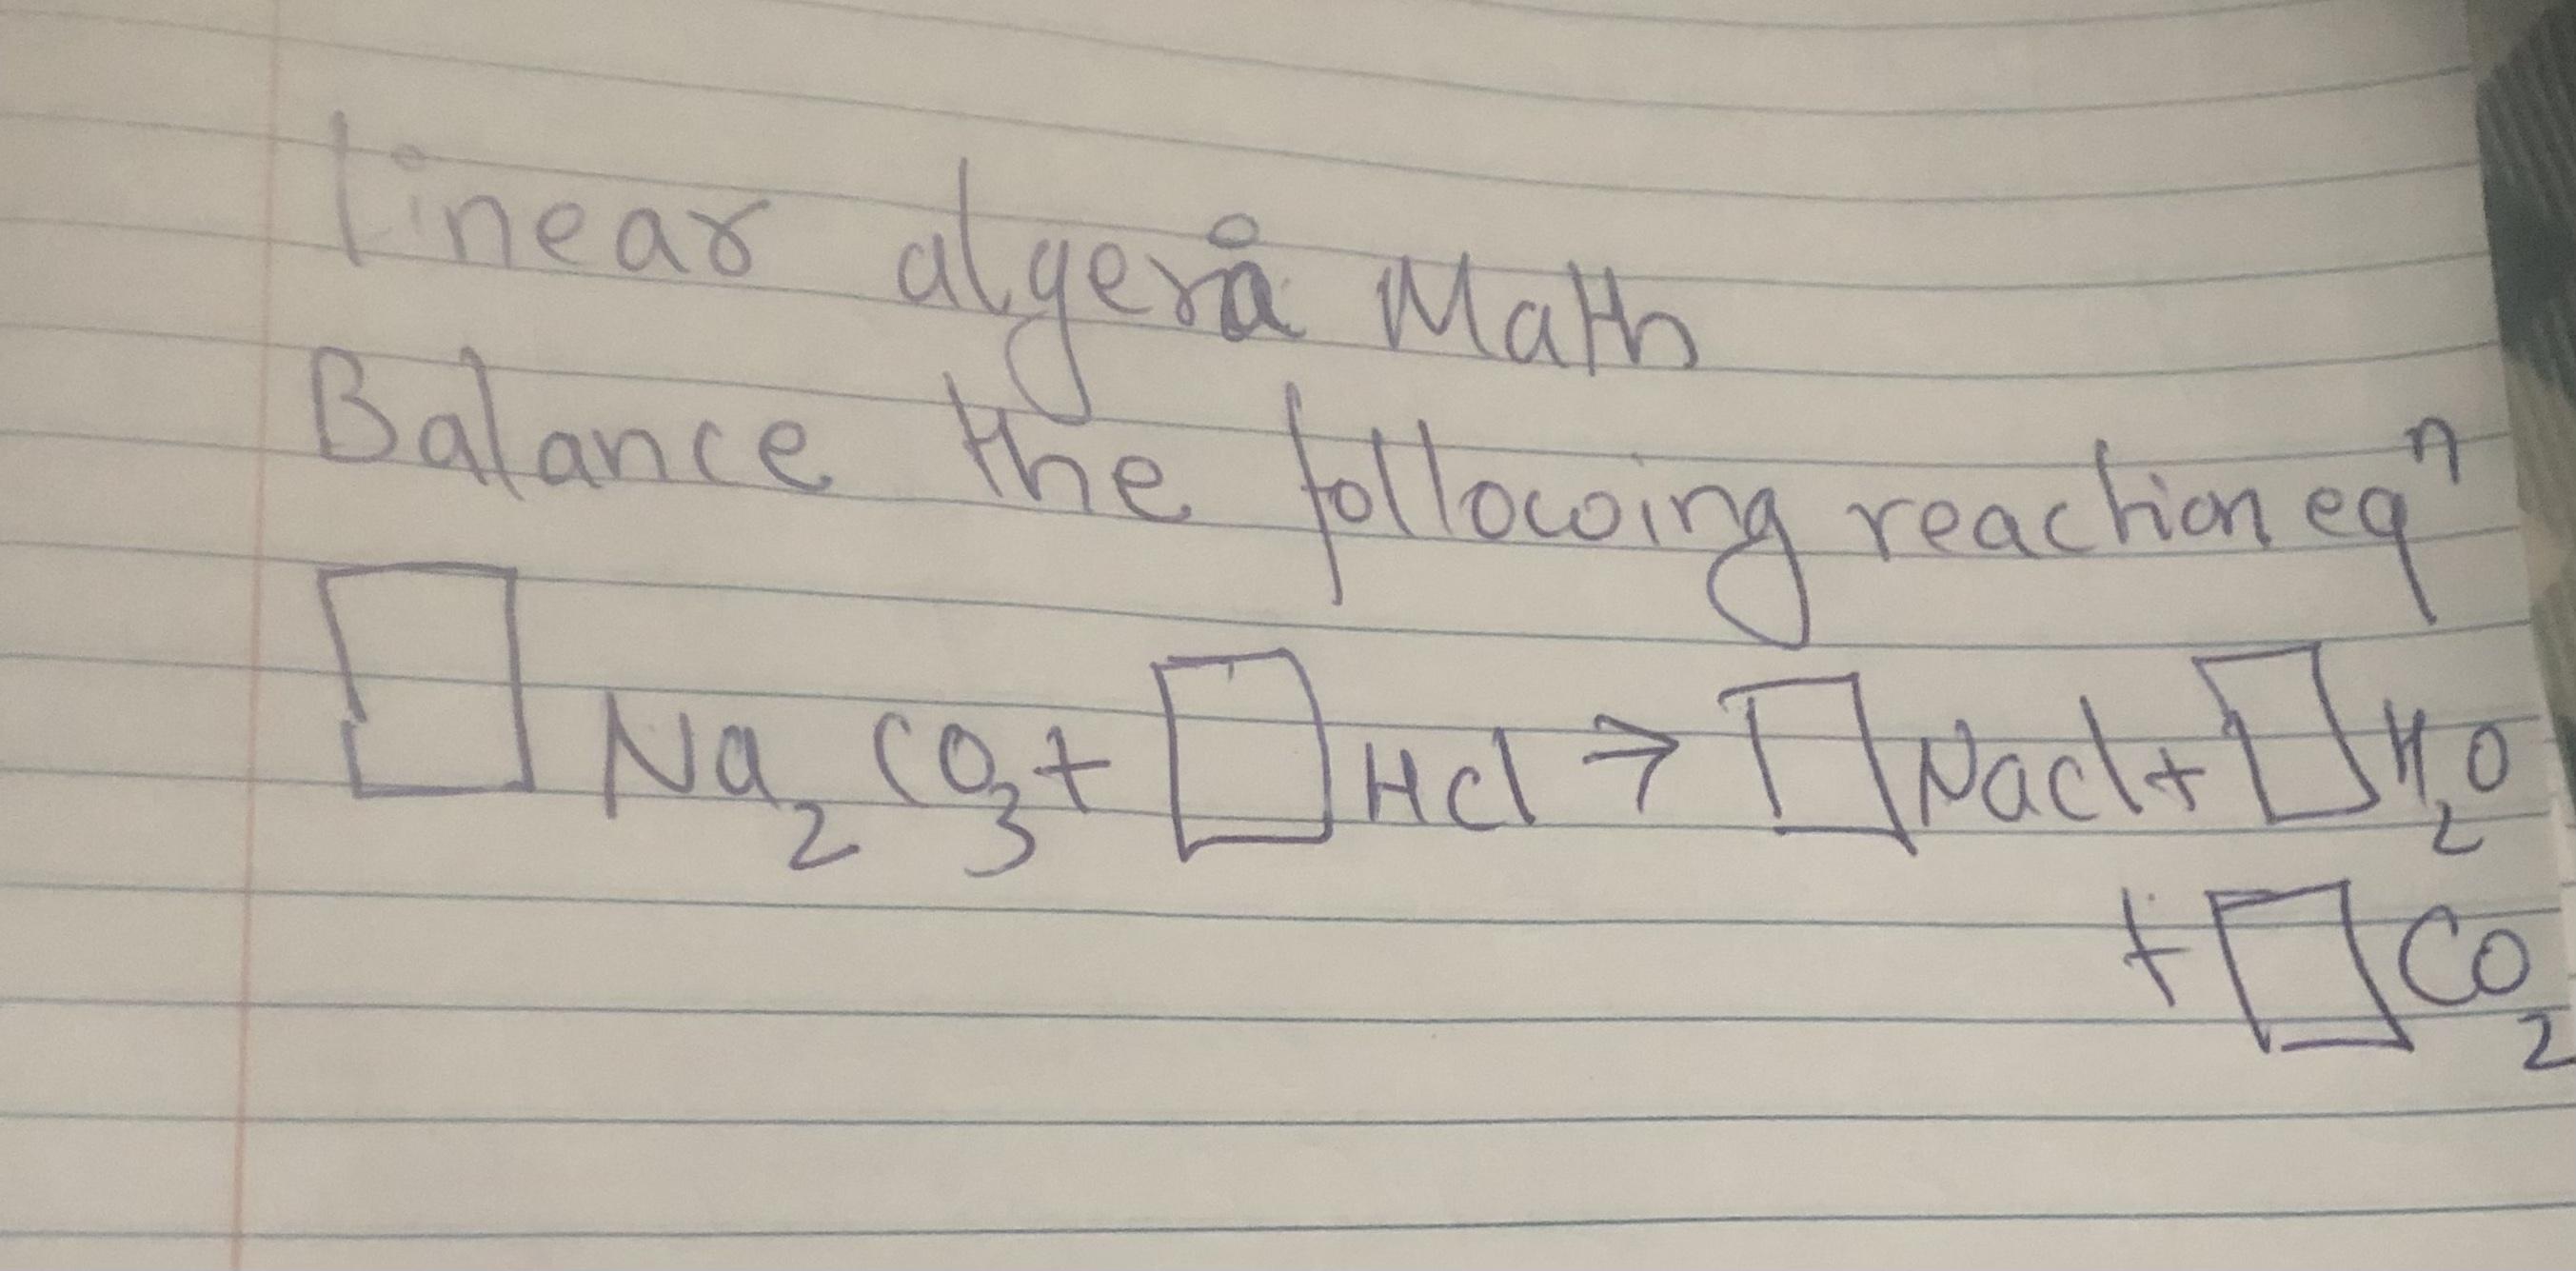 linear algera Math
Balance the following reaction eqⁿ
□ Na₂CO₃ + □ HCl → □ Nacl + □ H₂O
+ □ CO₂